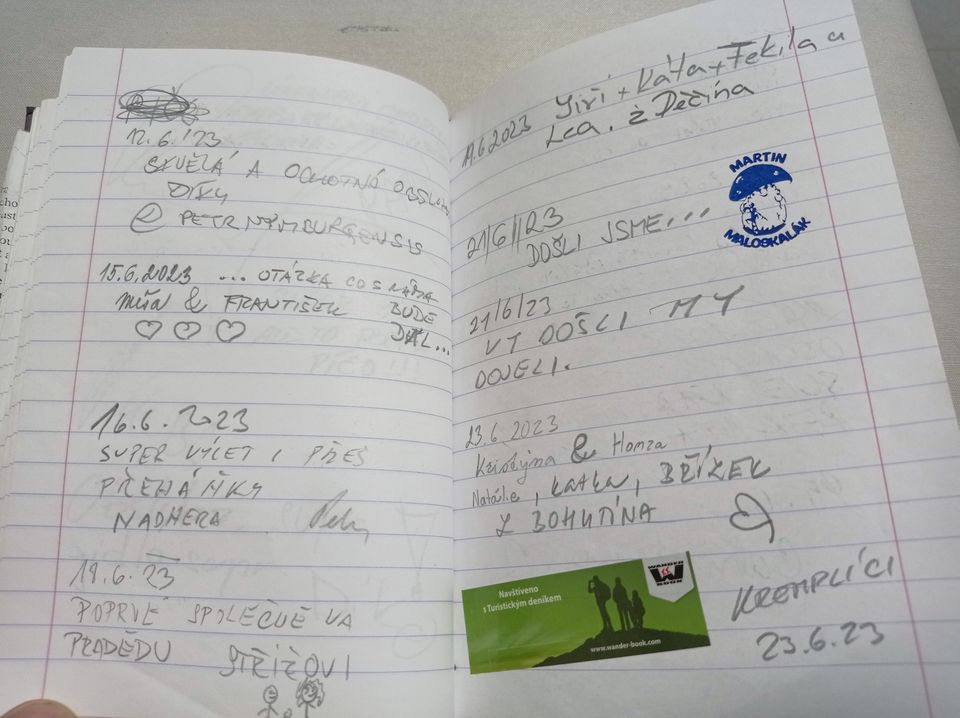 12.6.'23
SKVĚLÁ A OCHOTNÁ OBSLUHA
DÍKY
@ PETR NYMBURGENSIS
15.6.2023 ... OTÁZKA CO S NÁMA
Míša & FRANTIŠEK BUDE
DÁL...
16.6.2023
SUPER VÝLET I PŘES
PŘEHÁŇKY
NADHERA
19.6.23
POPRVÉ SPOLEČNĚ NA
PRADĚDU
STŘÍŽOVI
19.6.2023 Jiří + Káťa + Tekila a
Lea. z Děčína
MARTIN
MALOSKALÁK
21/6/23
DOŠLI JSME...
21/6/23
VY DOŠLI MY
DOJELI.
23.6.2023
Kristýna & Honza
Natálie, Katka, BŘÍZEK
Z BOHUTÍNA
Navštíveno
s Turistickým deníkem
www.wander-book.com
WANDER
BOOK
KREMPLÍCI
23.6.23